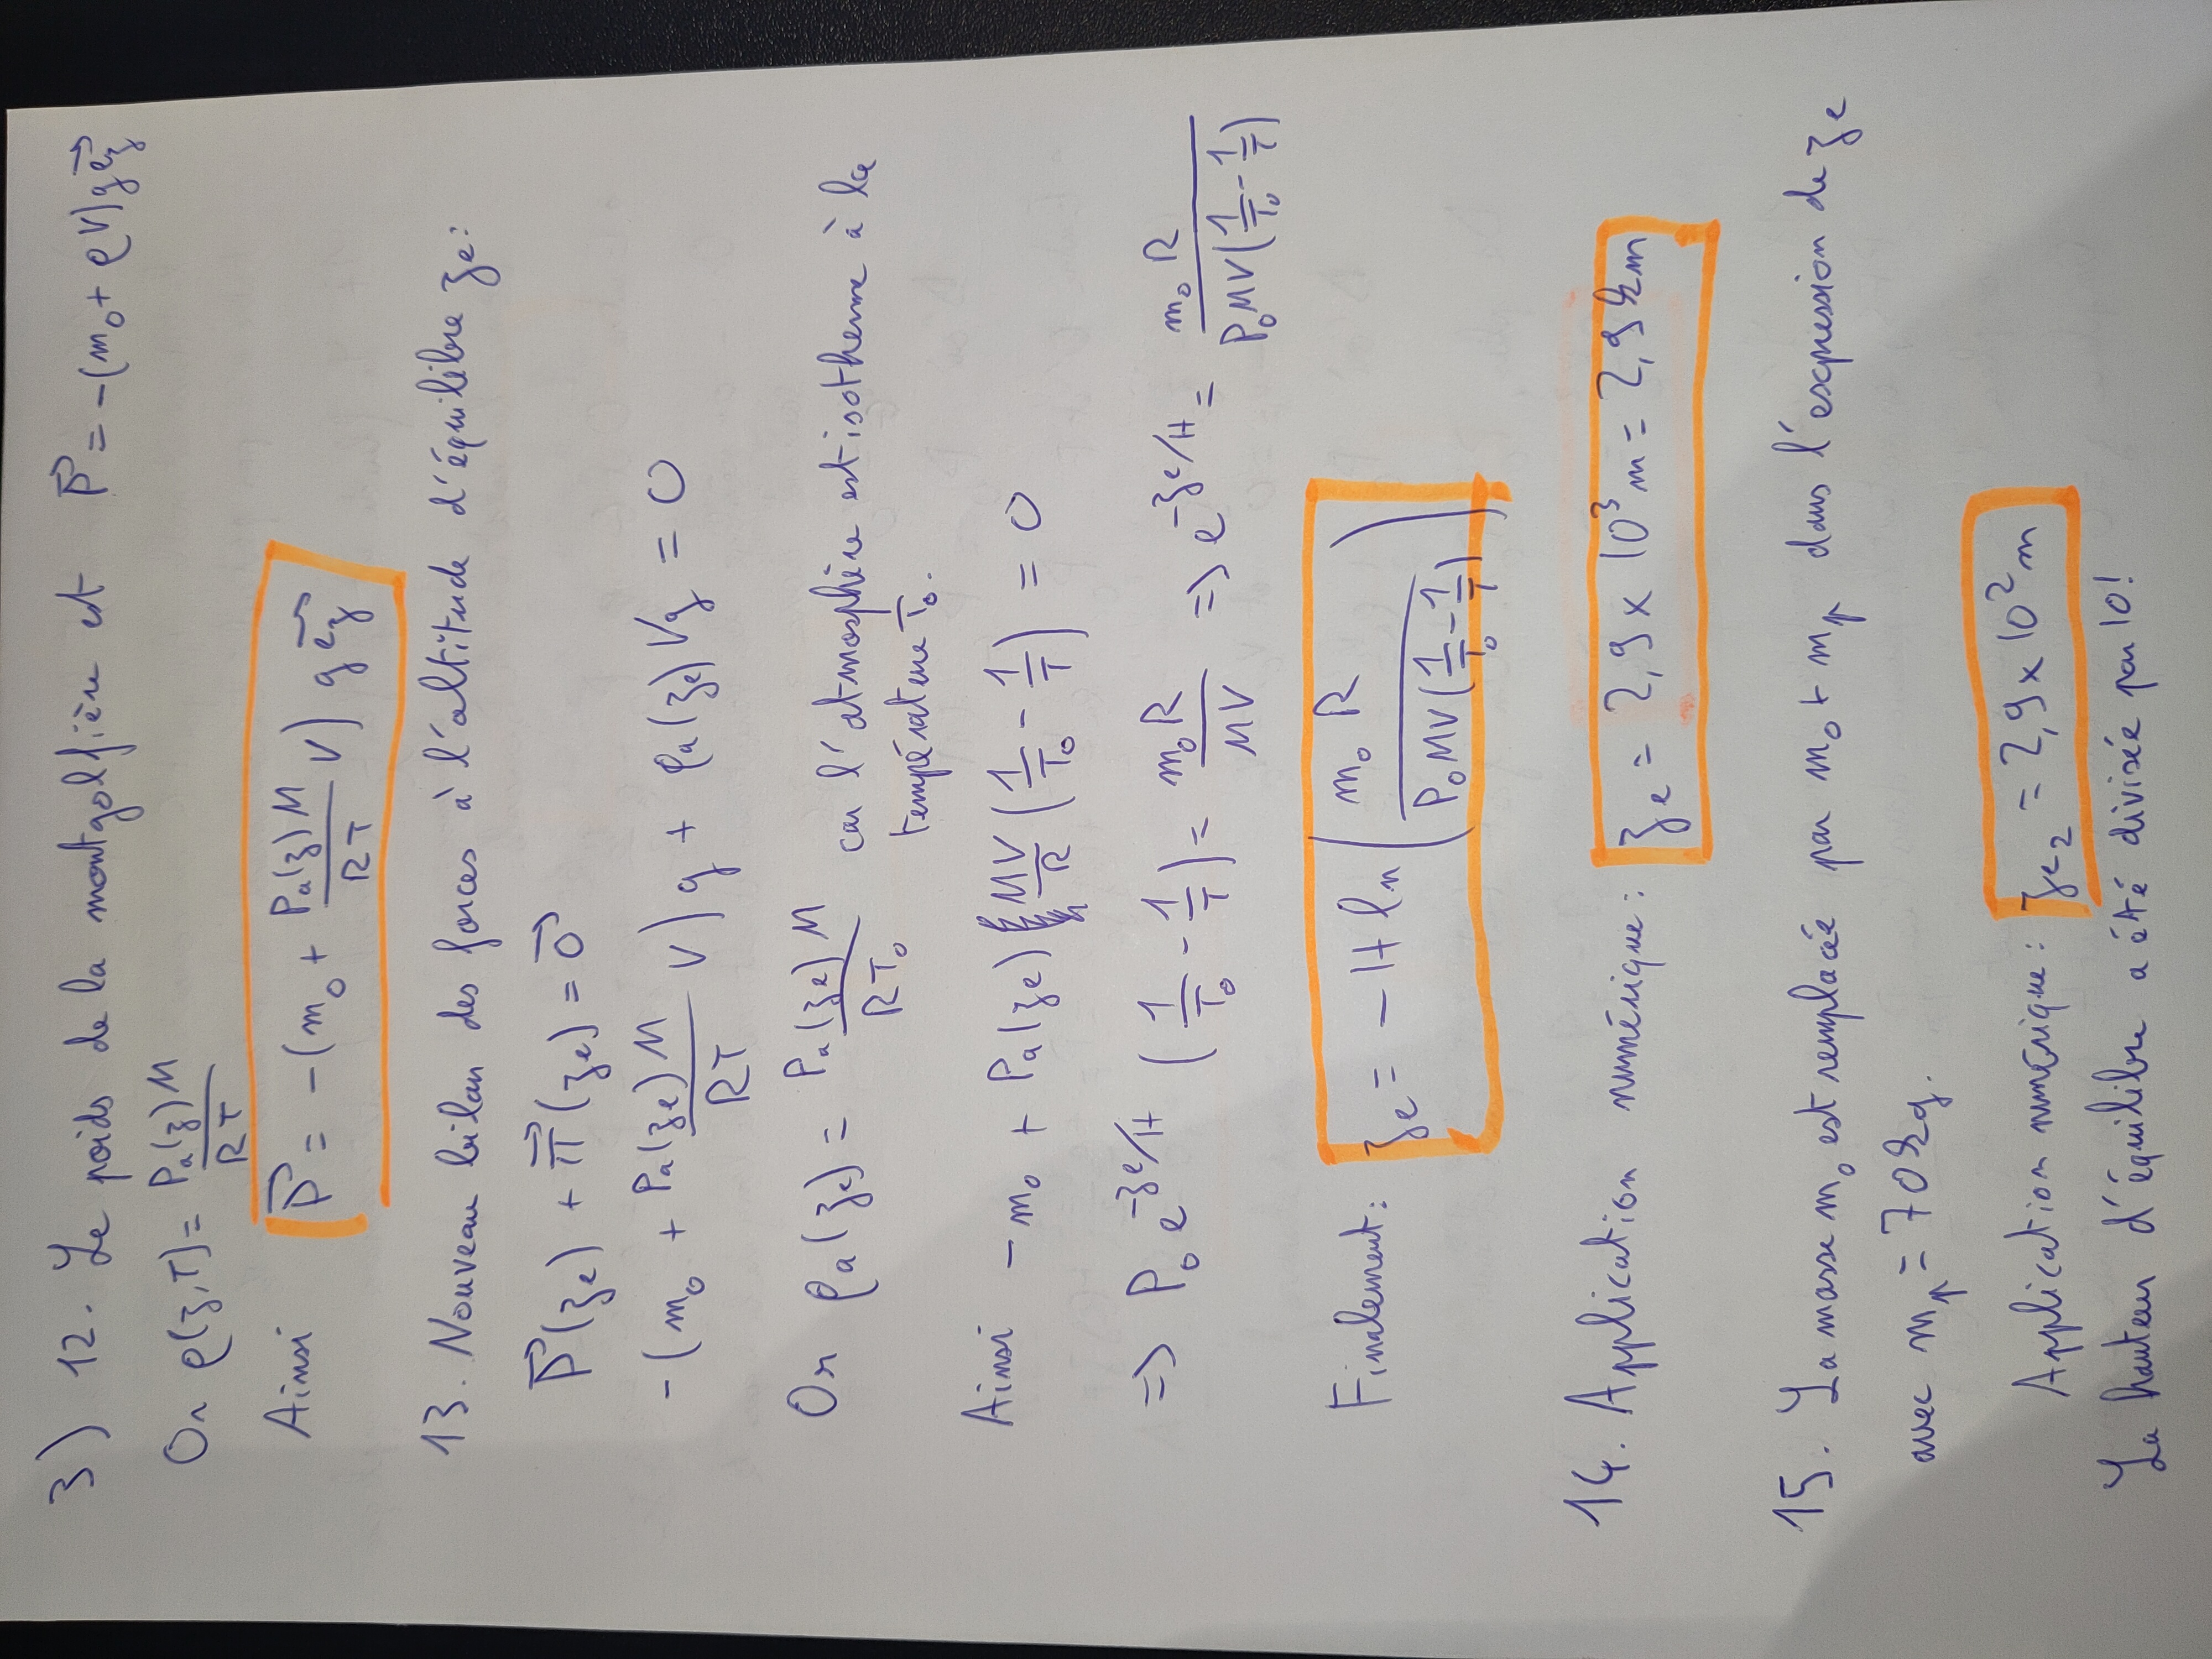 3) 12. Le poids de la montgolfière est P⃗ = -(m₀ + ρV)g e⃗z
Or ρ(z,T) = Pa(z)M / RT
Ainsi P⃗ = -(m₀ + Pa(z)M / RT V) g e⃗z
13. Nouveau bilan des forces à l'altitude d'équilibre ze:
P⃗(ze) + Π⃗(ze) = 0⃗
-(m₀ + Pa(ze)M / RT V) g + ρa(ze)Vg = 0
Or ρa(ze) = Pa(ze)M / RT₀ car l'atmosphère est isotherme à la
température T₀.
Ainsi -m₀ + Pa(ze) MV/R (1/T₀ - 1/T) = 0
=> P₀ e^(-ze/H) (1/T₀ - 1/T) = m₀R / MV => e^(-ze/H) = m₀R / P₀MV(1/T₀ - 1/T)
Finalement: ze = -H ln( m₀R / P₀MV(1/T₀ - 1/T) )
14. Application numérique: ze = 2,9 × 10³ m = 2,9 km
15. La masse m₀ est remplacée par m₀ + m₁ dans l'expression de ze
avec m₁ = 70kg.
Application numérique: ze₂ = 2,9 × 10² m
La hauteur d'équilibre a été divisée par 10!